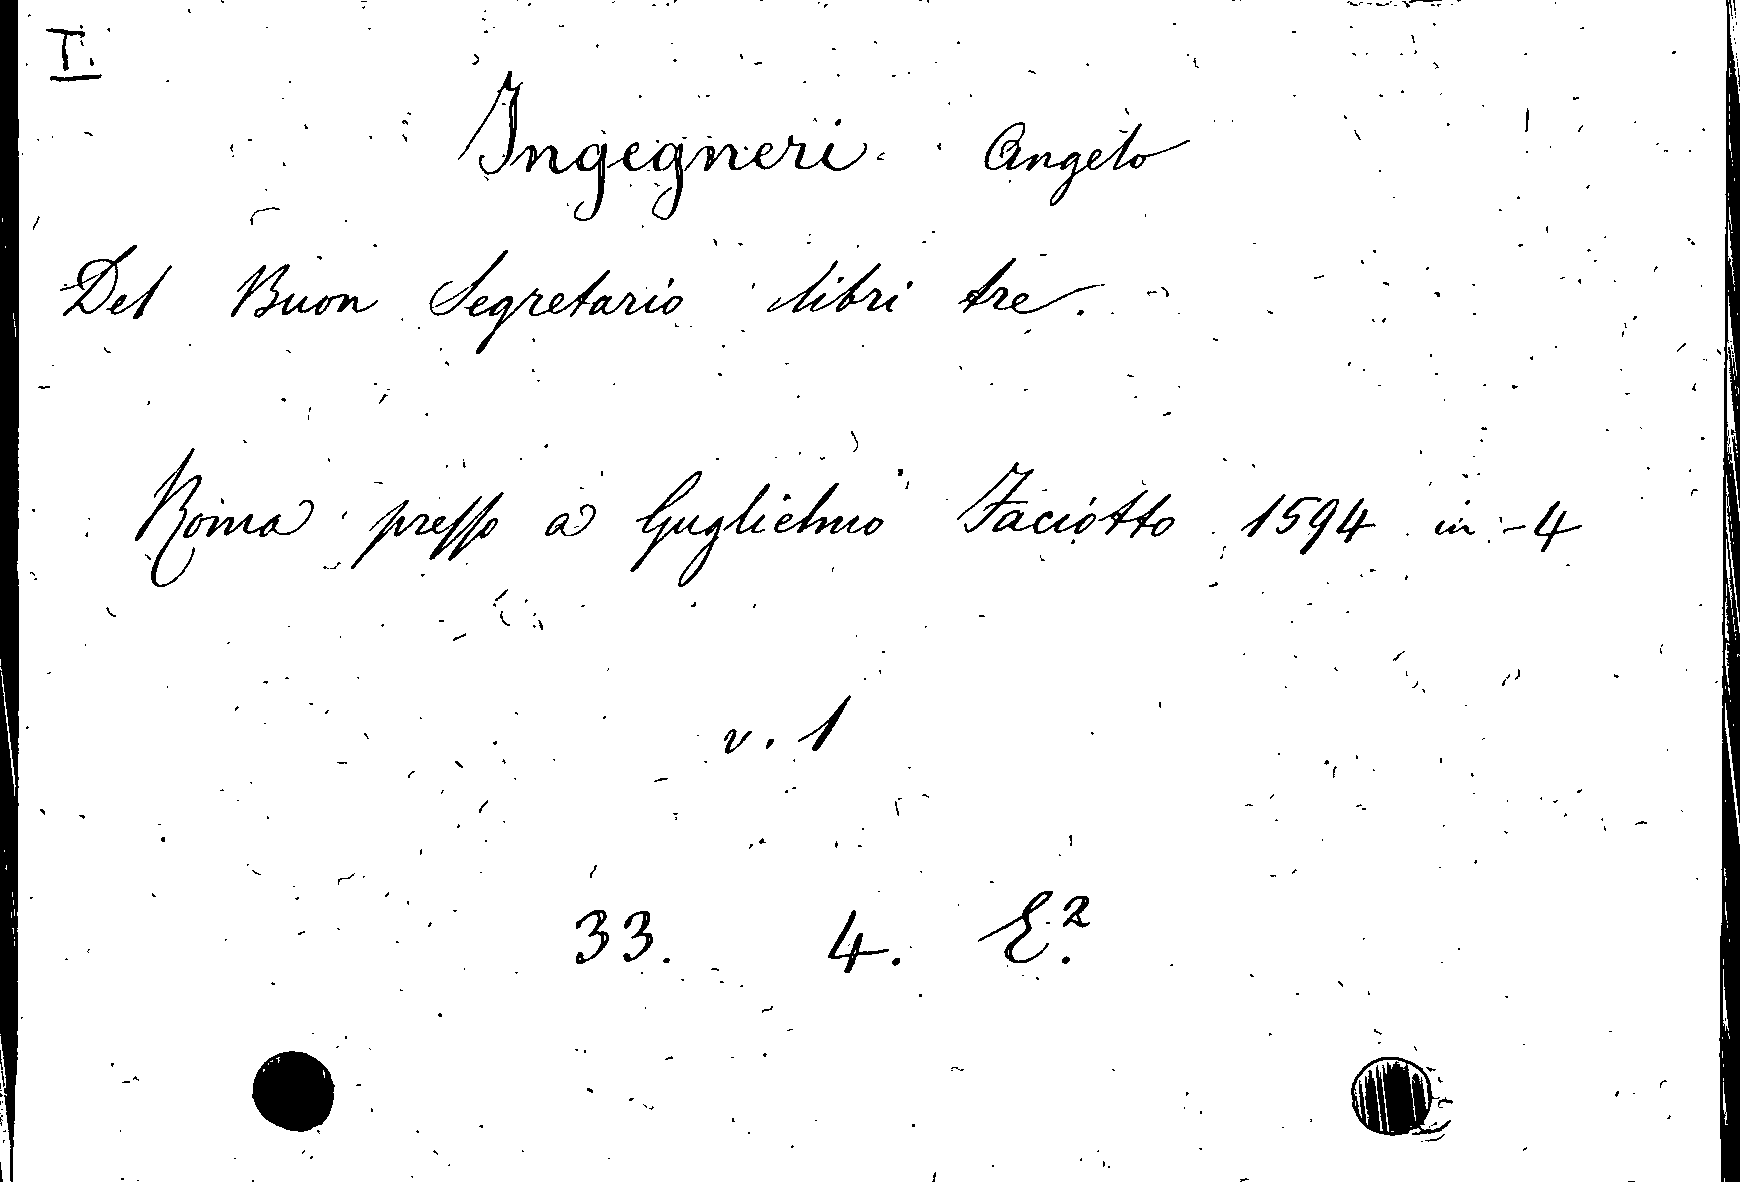 I.
Ingegneri Angelo
Del Buon Segretario libri tre.
Roma presso a Guglielmo Faciotto 1594 in-4
v. 1
33. 4. E.²